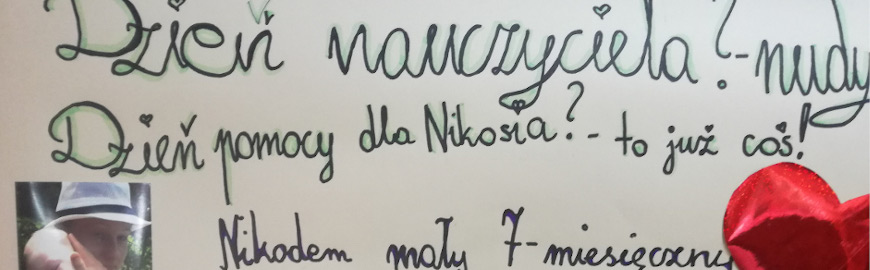 Dzień nauczyciela? - nudy
Dzień pomocy dla Nikosia? - to już coś!
Nikodem mały 7-miesięczny